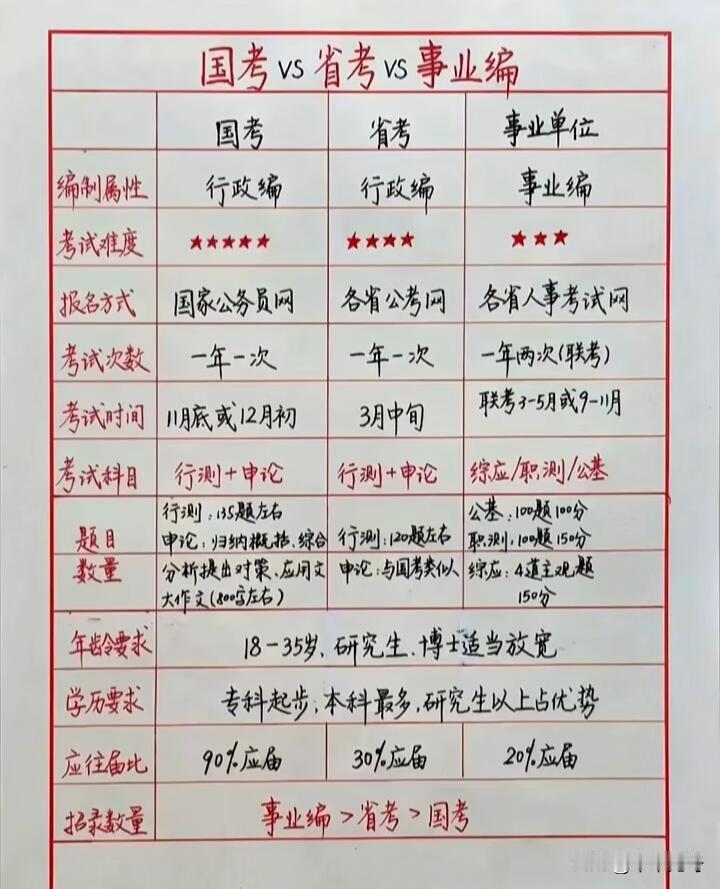 国考 vs 省考 vs 事业编
国考 省考 事业单位
编制属性 行政编 行政编 事业编
考试难度 ★★★★★ ★★★★ ★★★
报名方式 国家公务员网 各省公考网 各省人事考试网
考试次数 一年一次 一年一次 一年两次(联考)
考试时间 11月底或12月初 3月中旬 联考3-5月或9-11月
考试科目 行测+申论 行测+申论 综应/职测/公基
行测:135题左右 公基:100题100分
题目 申论:归纳概括、综合 行测:120题左右 职测:100题150分
数量 分析提出对策、应用文 申论:与国考类似 综应:4道主观题
大作文(800字左右) 150分
年龄要求 18-35岁,研究生、博士适当放宽
学历要求 专科起步,本科最多,研究生以上占优势
应往届比 90%应届 30%应届 20%应届
招录数量 事业编>省考>国考